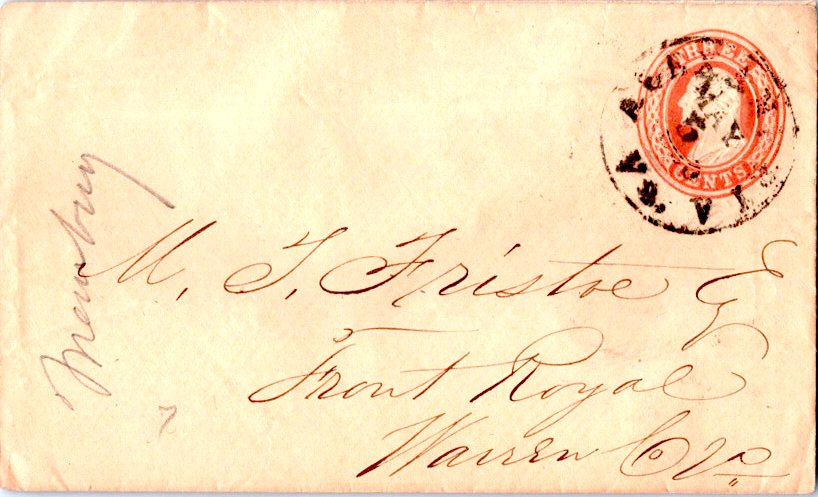 THREE
CENTS
MAY
M. T. Fristoe Esq
Front Royal
Warren Co Va